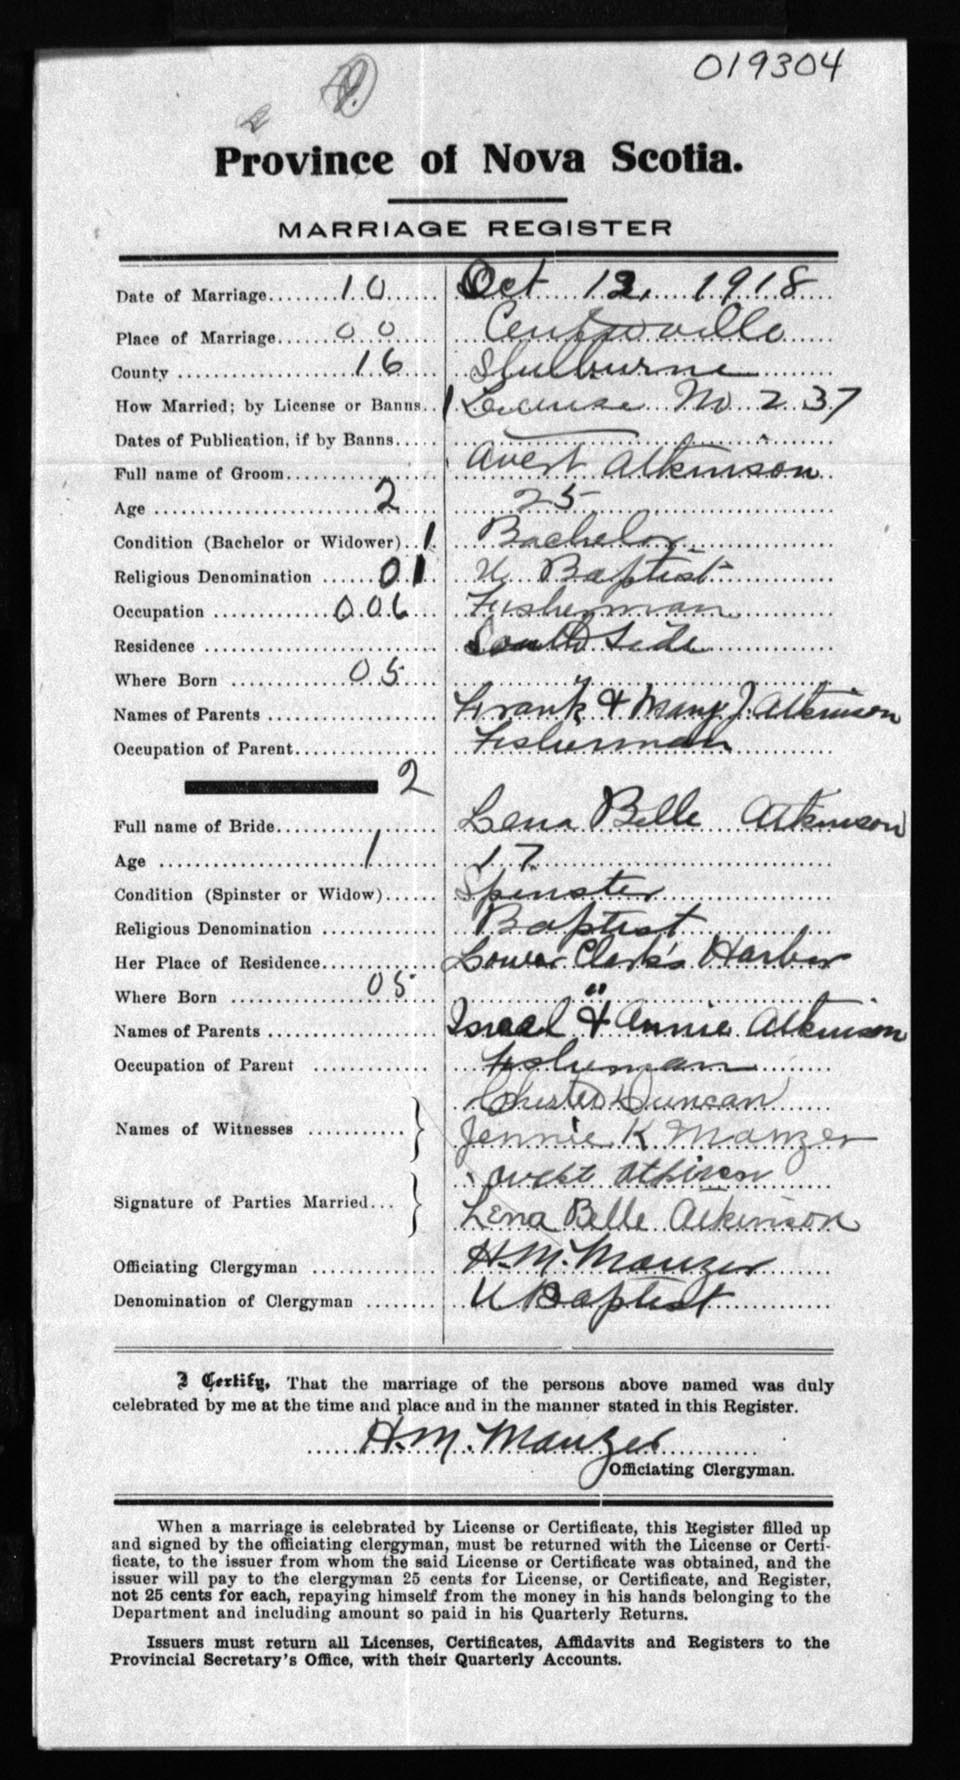 019304
Province of Nova Scotia.
MARRIAGE REGISTER
Date of Marriage........10...... Oct 12, 1918
Place of Marriage.......00...... Centreville
County ..................16.... Shelburne
How Married; by License or Banns..1 License No 237
Dates of Publication, if by Banns.....
Full name of Groom............... Avert Atkinson
Age ........................2.... 25
Condition (Bachelor or Widower)..1. Bachelor
Religious Denomination ......01.. U. Baptist
Occupation ............006... Fisherman
Residence ........................... South Side
Where Born ............05.... "
Names of Parents .................. Frank & Mary J. Atkinson
Occupation of Parent............... Fisherman
2
Full name of Bride................. Lena Belle Atkinson
Age .....................1....... 17
Condition (Spinster or Widow)...... Spinster
Religious Denomination ............ Baptist
Her Place of Residence............. Lower Clark's Harbor
Where Born ..............05.... "
Names of Parents .................. Israel & Annie Atkinson
Occupation of Parent ............. Fisherman
Chester Duncan
Names of Witnesses ...........
Jennie K Manzer
Avert Atkinson
Signature of Parties Married...
Lena Belle Atkinson
Officiating Clergyman .............. H. M. Manzer
Denomination of Clergyman ........ U Baptist
I Certify, That the marriage of the persons above named was duly
celebrated by me at the time and place and in the manner stated in this Register.
H. M. Manzer
Officiating Clergyman.
When a marriage is celebrated by License or Certificate, this Register filled up
and signed by the officiating clergyman, must be returned with the License or Certi-
ficate, to the issuer from whom the said License or Certificate was obtained, and the
issuer will pay to the clergyman 25 cents for License, or Certificate, and Register,
not 25 cents for each, repaying himself from the money in his hands belonging to the
Department and including amount so paid in his Quarterly Returns.
Issuers must return all Licenses, Certificates, Affidavits and Registers to the
Provincial Secretary's Office, with their Quarterly Accounts.